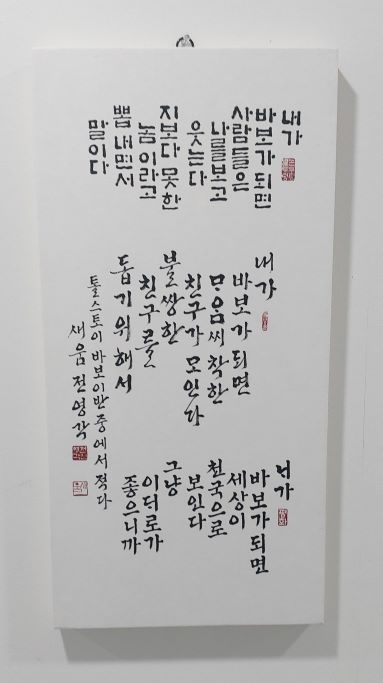 내가
바보가 되면
사람들은
나를보고
웃는다
지보다 못한
놈이라고
뽐내면서
말이다
내가
바보가 되면
마음씨 착한
친구가 모인다
불쌍한
친구를
돕기 위해서
내가
바보가 되면
세상이
천국으로
보인다
그냥
이대로가
좋으니까
톨스토이 바보이반 중에서 적다
새움 전영각